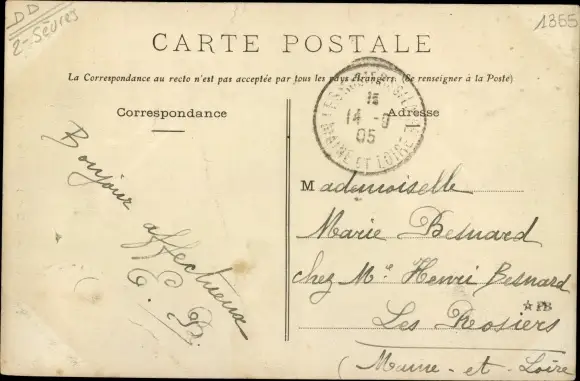 DD
2-Sèvres
1355
CARTE POSTALE
La Correspondance au recto n'est pas acceptée par tous les pays étrangers. (Se renseigner à la Poste)
Correspondance
Adresse
14 -9
05
MAINE ET LOIRE
Bonjour
affectueux
E. B.
Mademoiselle
Marie Besnard
chez Mr Henri Besnard
PB
Les Rosiers
(Maine-et-Loire